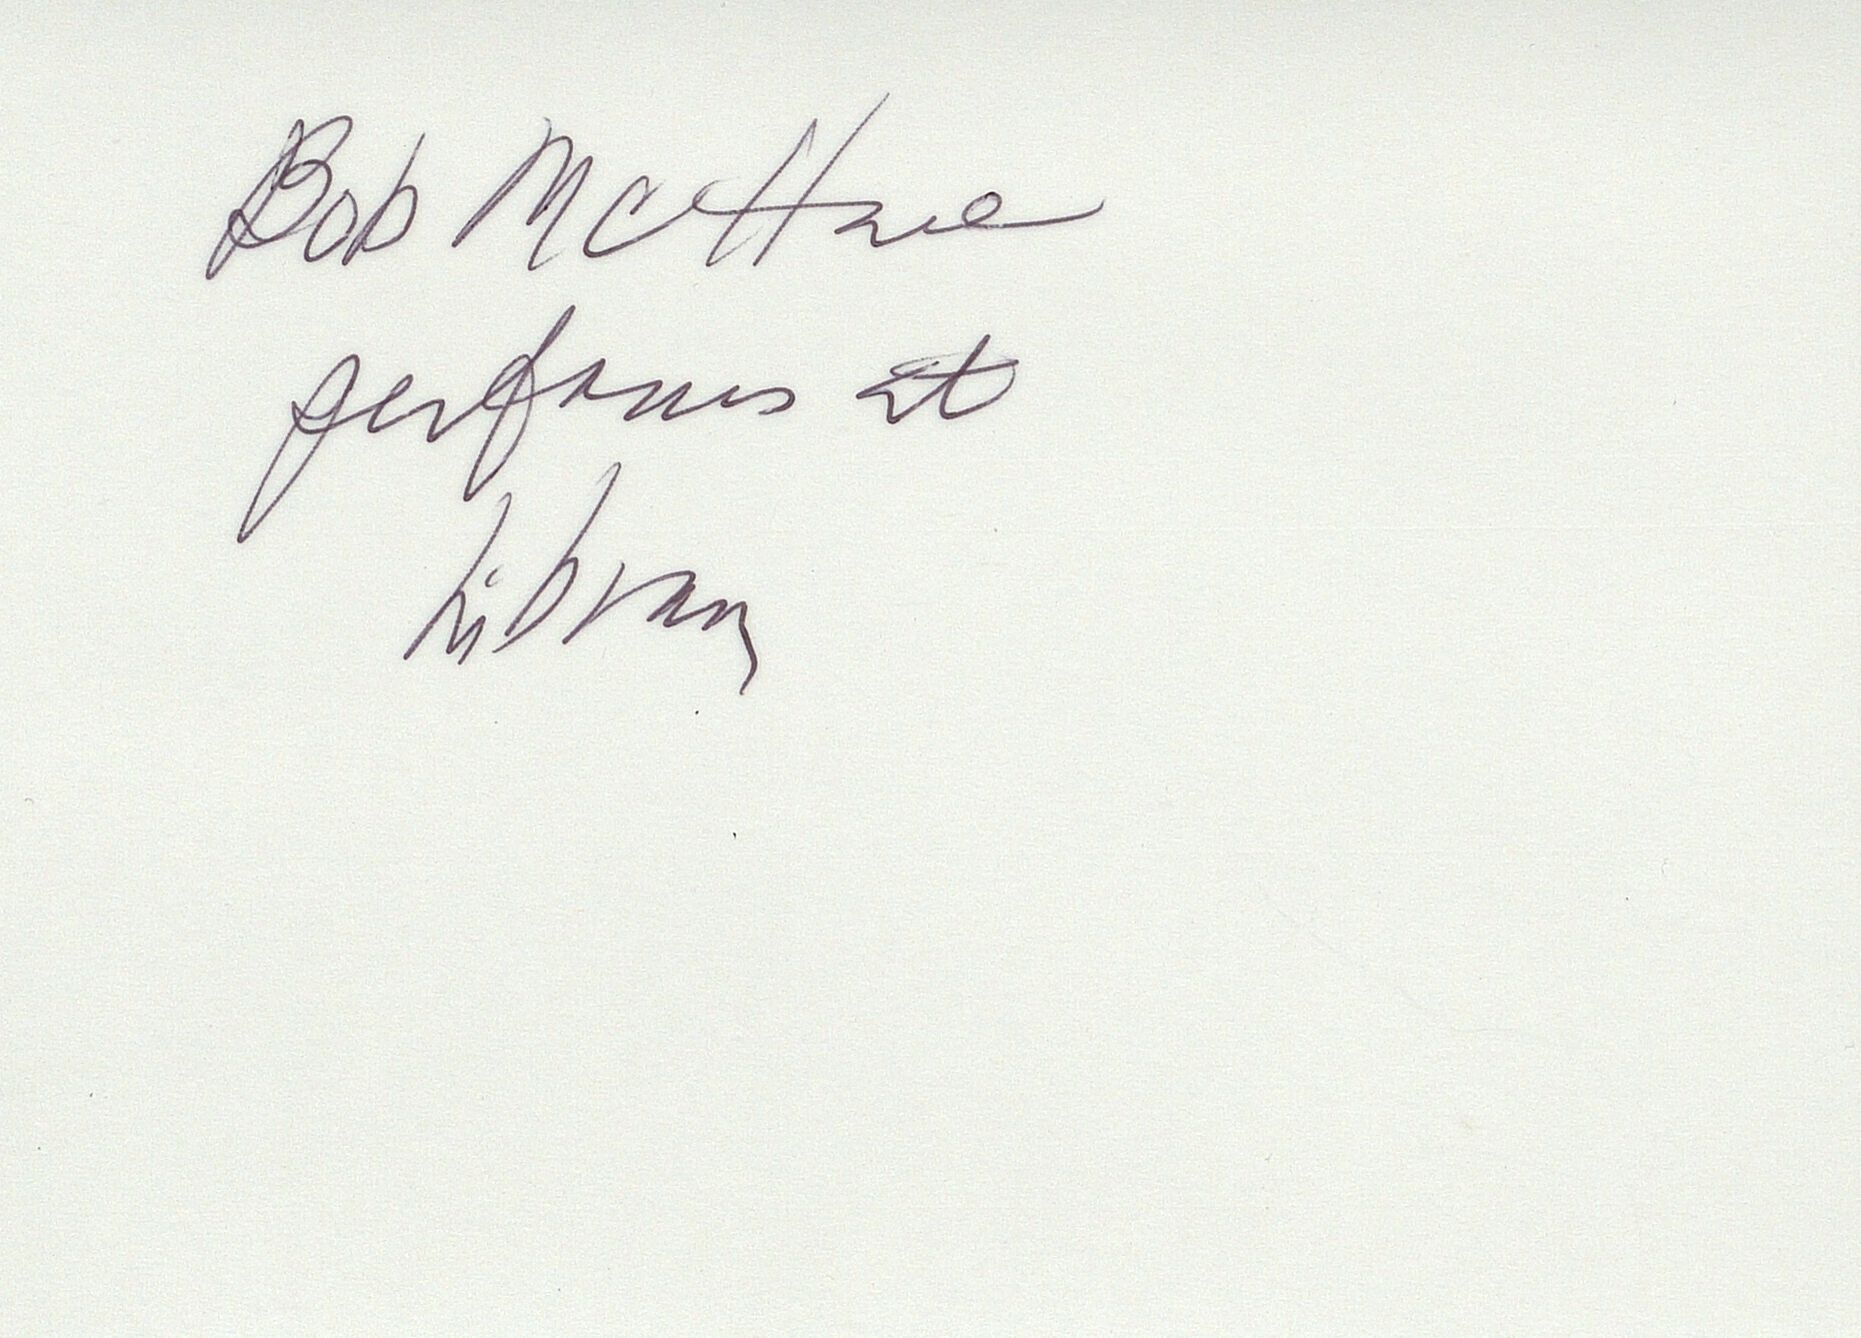 Bob Mc
performs at
Library